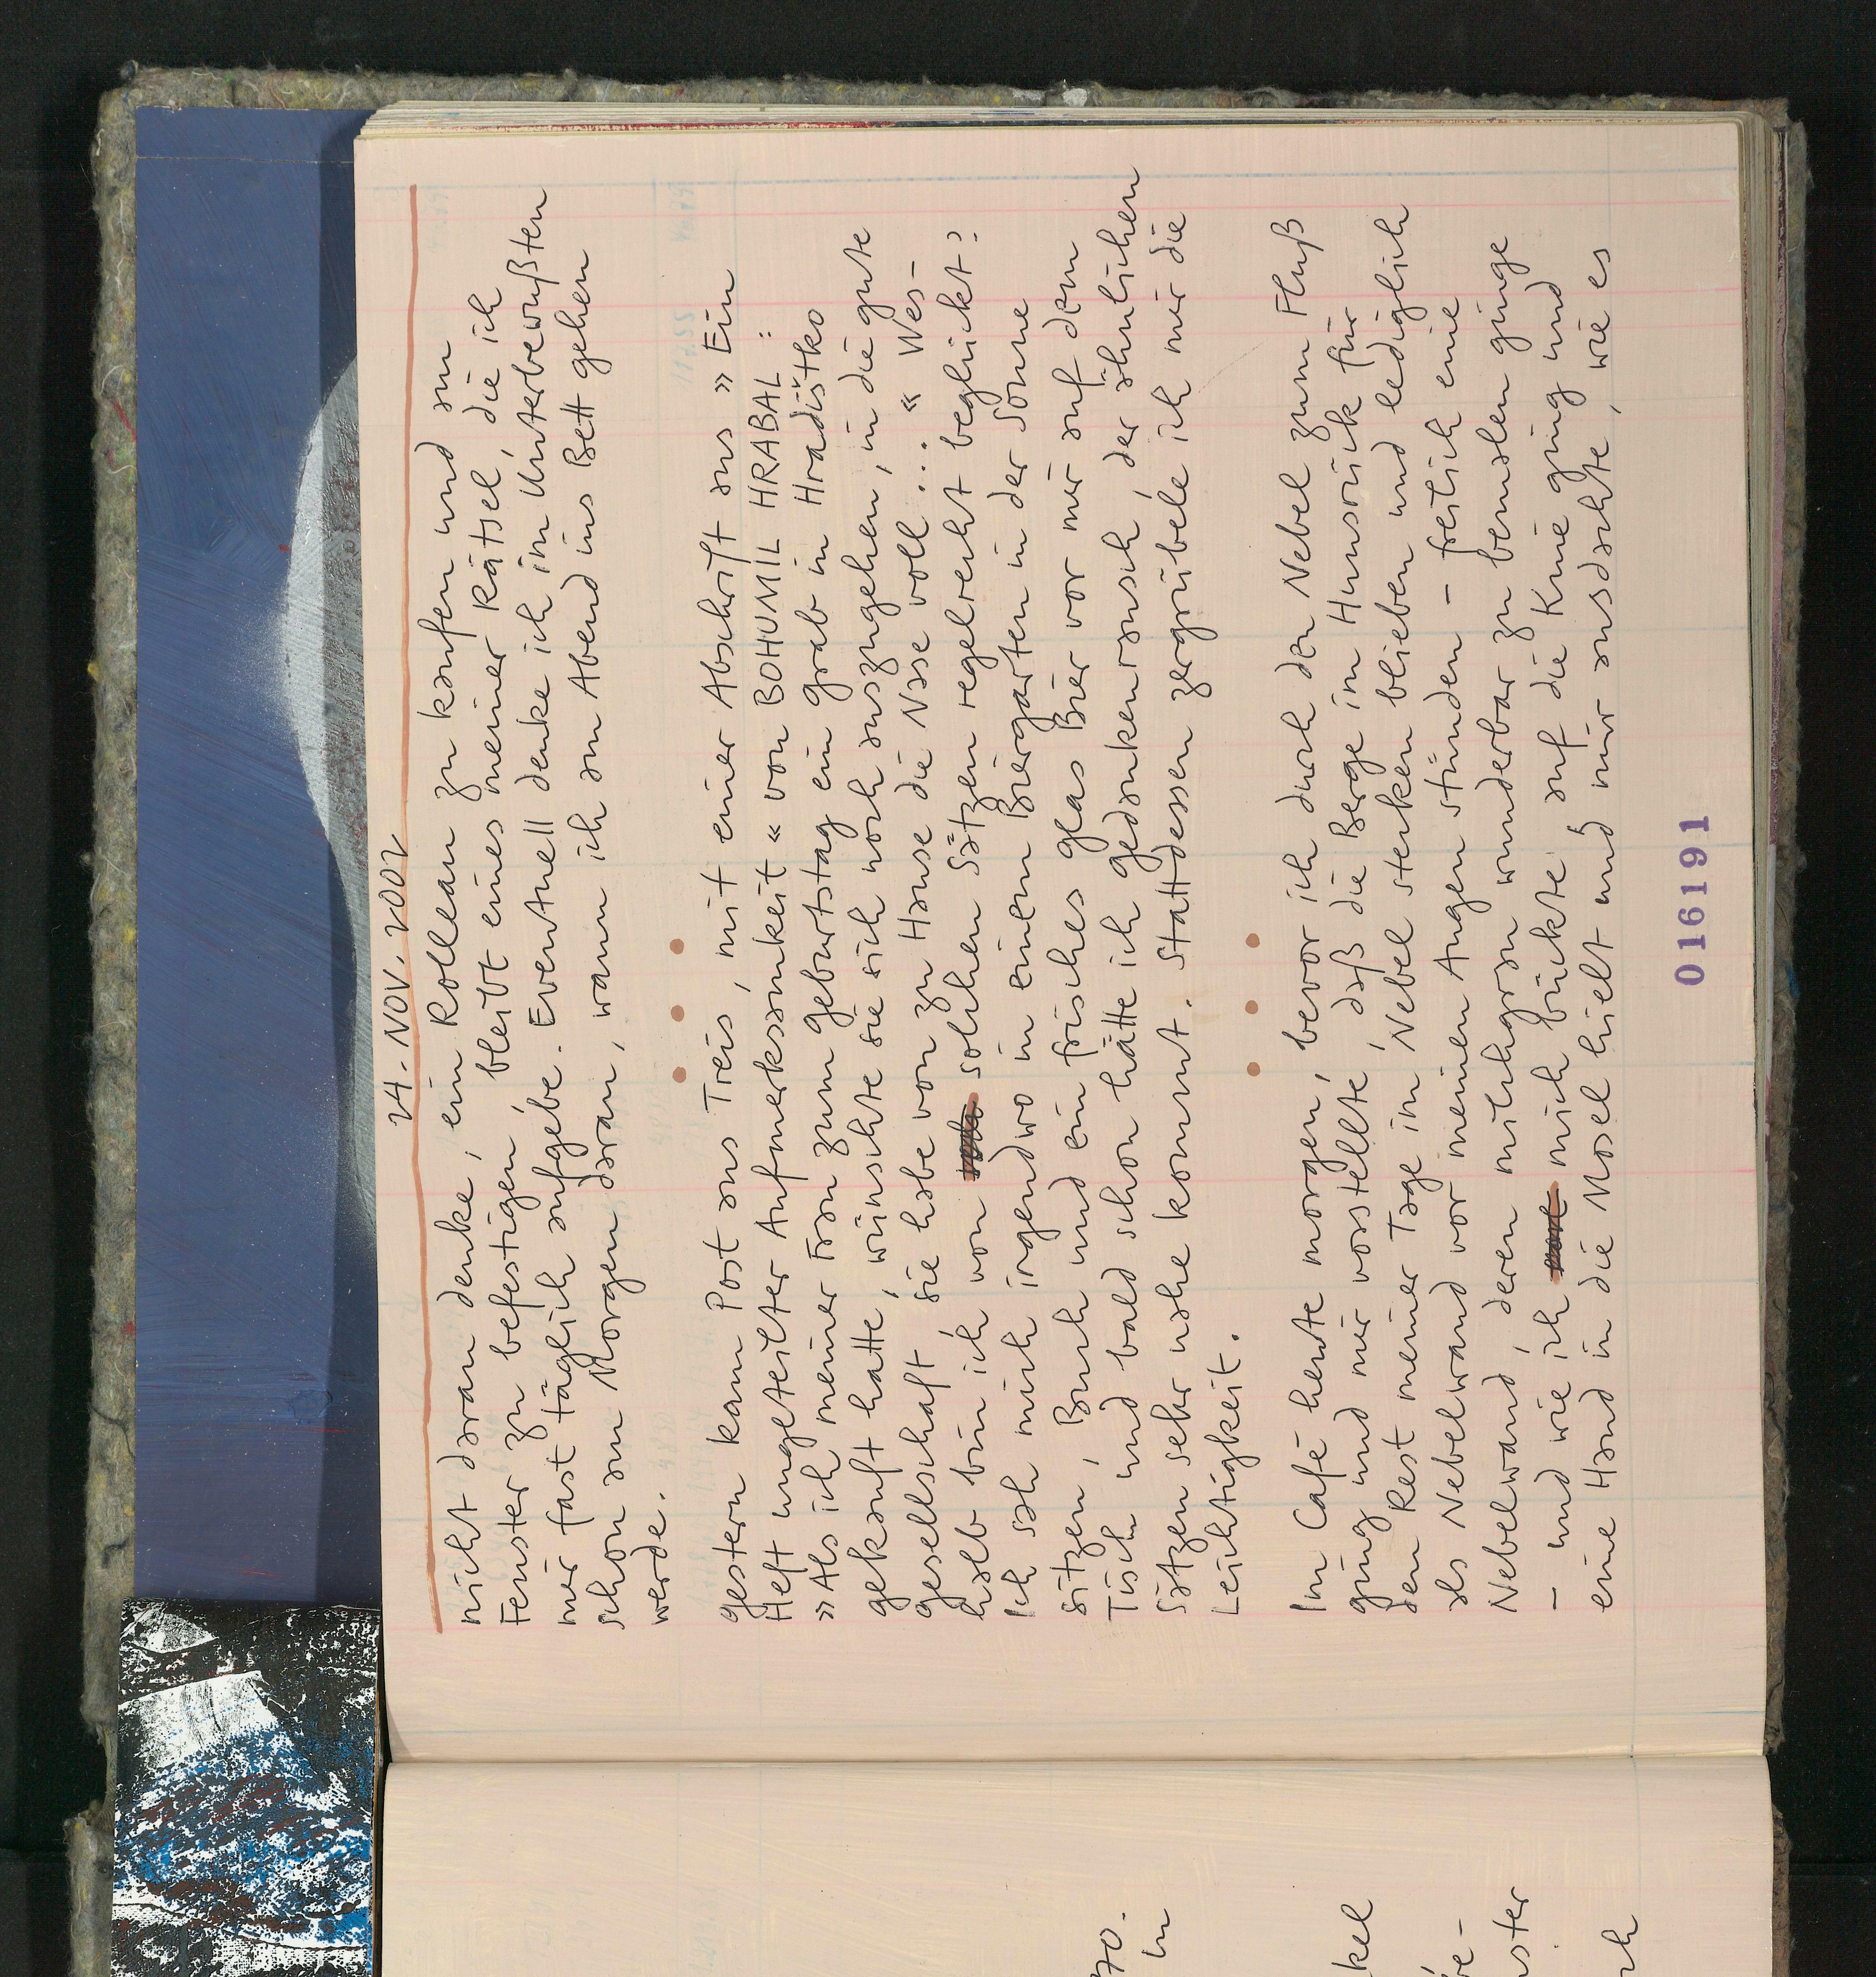 24. NOV. 2002
nicht daran denke, ein Rolleau zu kaufen und am
Fenster zu befestigen, bleibt eines meiner Rätsel, die ich
mir fast täglich aufgebe. Eventuell denke ich im Unterbewußten
schon am Morgen daran, wann ich am Abend ins Bett gehen
werde.
Gestern kam Post aus Treis, mit einer Abschrift aus » Ein
Heft ungeteilter Aufmerksamkeit « von BOHUMIL HRABAL:
» Als ich meiner Frau zum Geburtstag ein Grab in Hradištko
gekauft hatte, wünschte sie sich noch auszugehen, in die gute
Gesellschaft, sie habe von zu Hause die Nase voll ... « Wes-
halb bin ich von solchen Sätzen regelrecht beglückt?
Ich sah mich irgendwo in einem Biergarten in der Sonne
sitzen, Buch und ein frisches Glas Bier vor mir auf dem
Tisch und bald schon hätte ich Gedankenrausch, der ähnlichen
Sätzen sehr nahe kommt. Stattdessen zergrübele ich mir die
Leichtigkeit.
Im Café heute morgen, bevor ich durch den Nebel zum Fluß
ging und mir vorstellte, daß die Berge im Hunsrück für
den Rest meiner Tage im Nebel stecken blieben und lediglich
als Nebelwand vor meinen Augen stünden - freilich eine
Nebelwand, deren milchgrau wunderbar zu bemalen ginge
- und wie ich mich bückte, auf die Knie ging und
eine Hand in die Mosel hielt und mir ausdachte, wie es
016191
70.
In
kel
re-
nster
ch